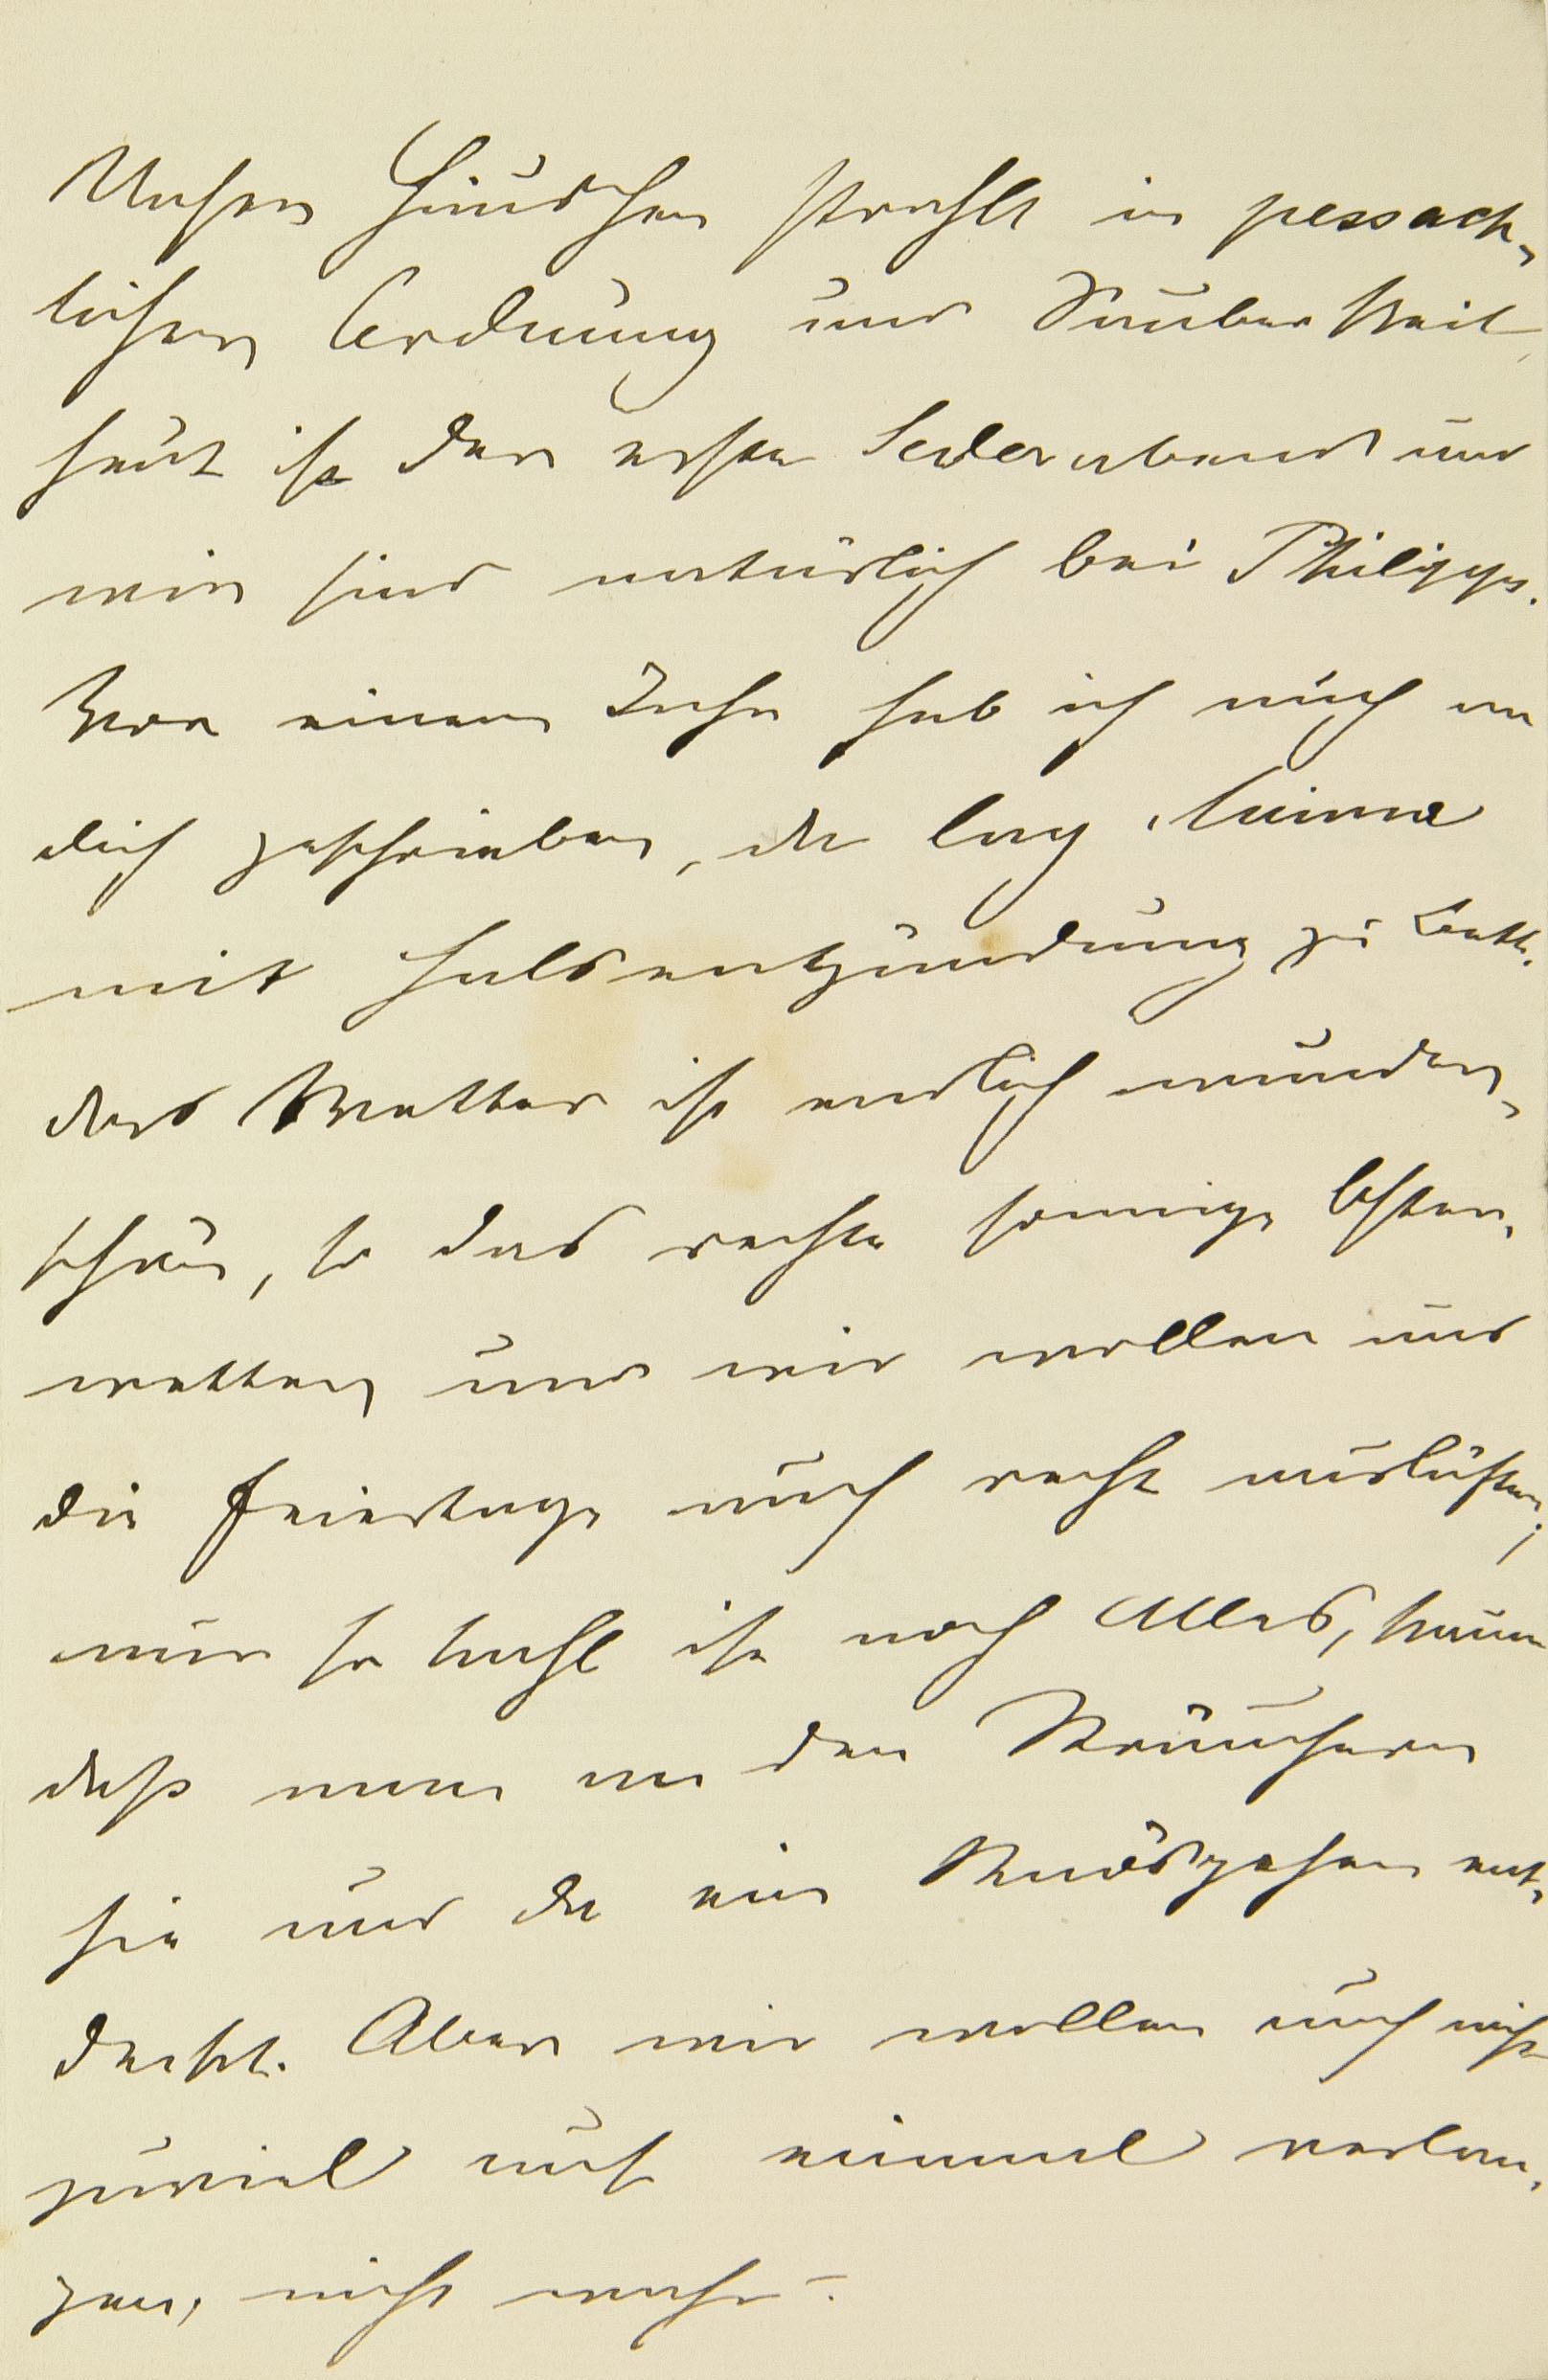 Unser Häuschen strahlt in pessach-
licher Ordnung und Sauberkeit,
heut ist der erste Sederabend und
wir sind natürlich bei Philipps.
Vor einem Jahr hab ich auch an
dich geschrieben, da lag Mima
mit Halsentzündung zu Bett.
das Wetter ist endlich wunder-
schön, so das rechte sonnige Oster-
wetter und wir wollen uns
die Feiertage auch recht auslüften;
nur so kahl ist noch Alles, kaum
daß man an den Sträuchern
hie und da ein Knöspchen ent-
deckt. Aber wir wollen auch nicht
zuviel auf einmal verlan-
gen, nicht wahr?